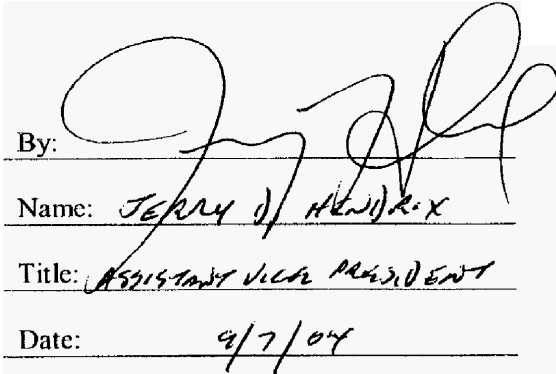 By:
Name: JERRY D. HENDRIX
Title: ASSISTANT VICE PRESIDENT
Date: 9/7/04